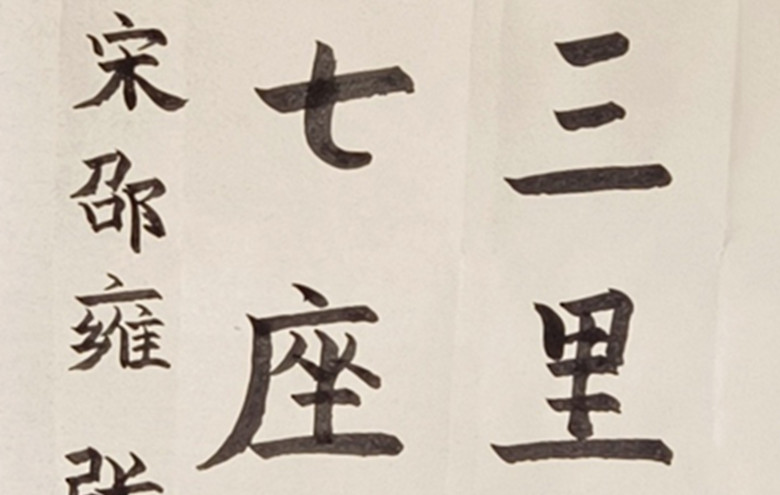 三里
七座
宋邵雍 张